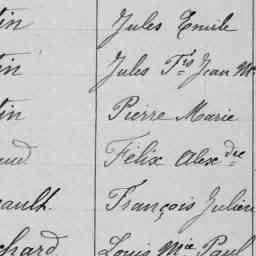 tin Jules Emile
tin Jules Fs Jean M
tin Pierre Marie
aud Félix Alexdre
cault. François Julien
chard Louis Mie Paul